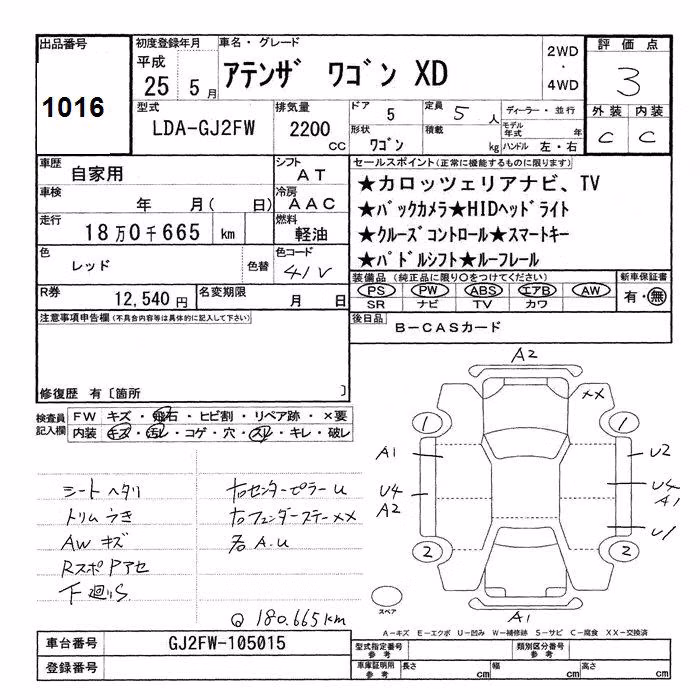 出品番号
1016
初度登録年月
平成
25 5月
車名・グレード
アテンザ ワゴン XD
2WD
・
4WD
評価点
3
外装 内装
C C
型式
LDA-GJ2FW
排気量
2200
CC
ドア 5
定員 5人
形状 ワゴン
積載 kg
ディーラー・並行
モデル年式 年
ハンドル 左・右
車歴 自家用
シフト AT
車検 年 月( 日)
冷房 AAC
走行 18万0千665 km
燃料 軽油
色 レッド
色替
色コード 41V
R券 12,540円
名変期限 月 日
セールスポイント(正常に機能するものに限ります)
★カロッツェリアナビ、TV
★バックカメラ★HIDヘッドライト
★クルーズコントロール★スマートキー
★パドルシフト★ルーフレール
装備品 (純正品に限り○をつけてください)
PS PW ABS エアB AW
SR ナビ TV カワ
新車保証書
有・無
後日品 B-CASカード
注意事項申告欄(不具合内容等は具体的に記入して下さい)
修復歴 有〔箇所 〕
検査員記入欄
FW キズ・飛石・ヒビ割・リペア跡・×要
内装 キズ・汚レ・コゲ・穴・スレ・キレ・破レ
シートヘタリ
トリムうき
AWキズ
RスポPアセ
下廻りS
右センターピラーU
右フェンダーステーXX
右A.U
Q 180.665km
A2
XX
1 1
A1 U2
U4 U4
A2 A1
U1
2 2
A1
スペア
A-キズ E-エクボ U-凹み W-補修跡 S-サビ C-腐食 XX-交換済
車台番号 GJ2FW-105015
登録番号
型式指定番号 参考
類別区分番号 参考
車庫証明用 参考
長さ cm 幅 cm 高さ cm